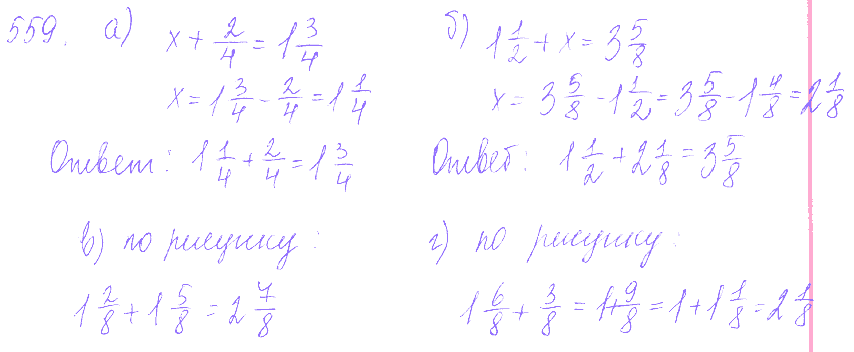 559. а) x + 2/4 = 1 3/4
x = 1 3/4 - 2/4 = 1 1/4
Ответ: 1 1/4 + 2/4 = 1 3/4
б) 1 1/2 + x = 3 5/8
x = 3 5/8 - 1 1/2 = 3 5/8 - 1 4/8 = 2 1/8
Ответ: 1 1/2 + 2 1/8 = 3 5/8
в) по рисунку:
1 2/8 + 1 5/8 = 2 7/8
г) по рисунку:
1 6/8 + 3/8 = 1+ 9/8 = 1 + 1 1/8 = 2 1/8